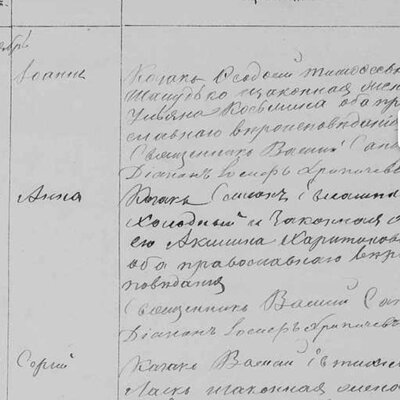 Іоаннъ
Козакъ Ѳеодосій Тимоѳеевъ
и законная жен
Ульяна Козьмина оба пра
славнаго вероисповѣданія
Священникъ Василій Сап
Діаконъ Іосифъ Хрипачев
Анна
Козакъ Симонъ
Холодный и законная
его Акилина Харитонов
оба православнаго веро
повѣданія
Священникъ Василій Сап
Діаконъ Іосифъ Хрипачев
Сергій
Козакъ Василій
и законная жена